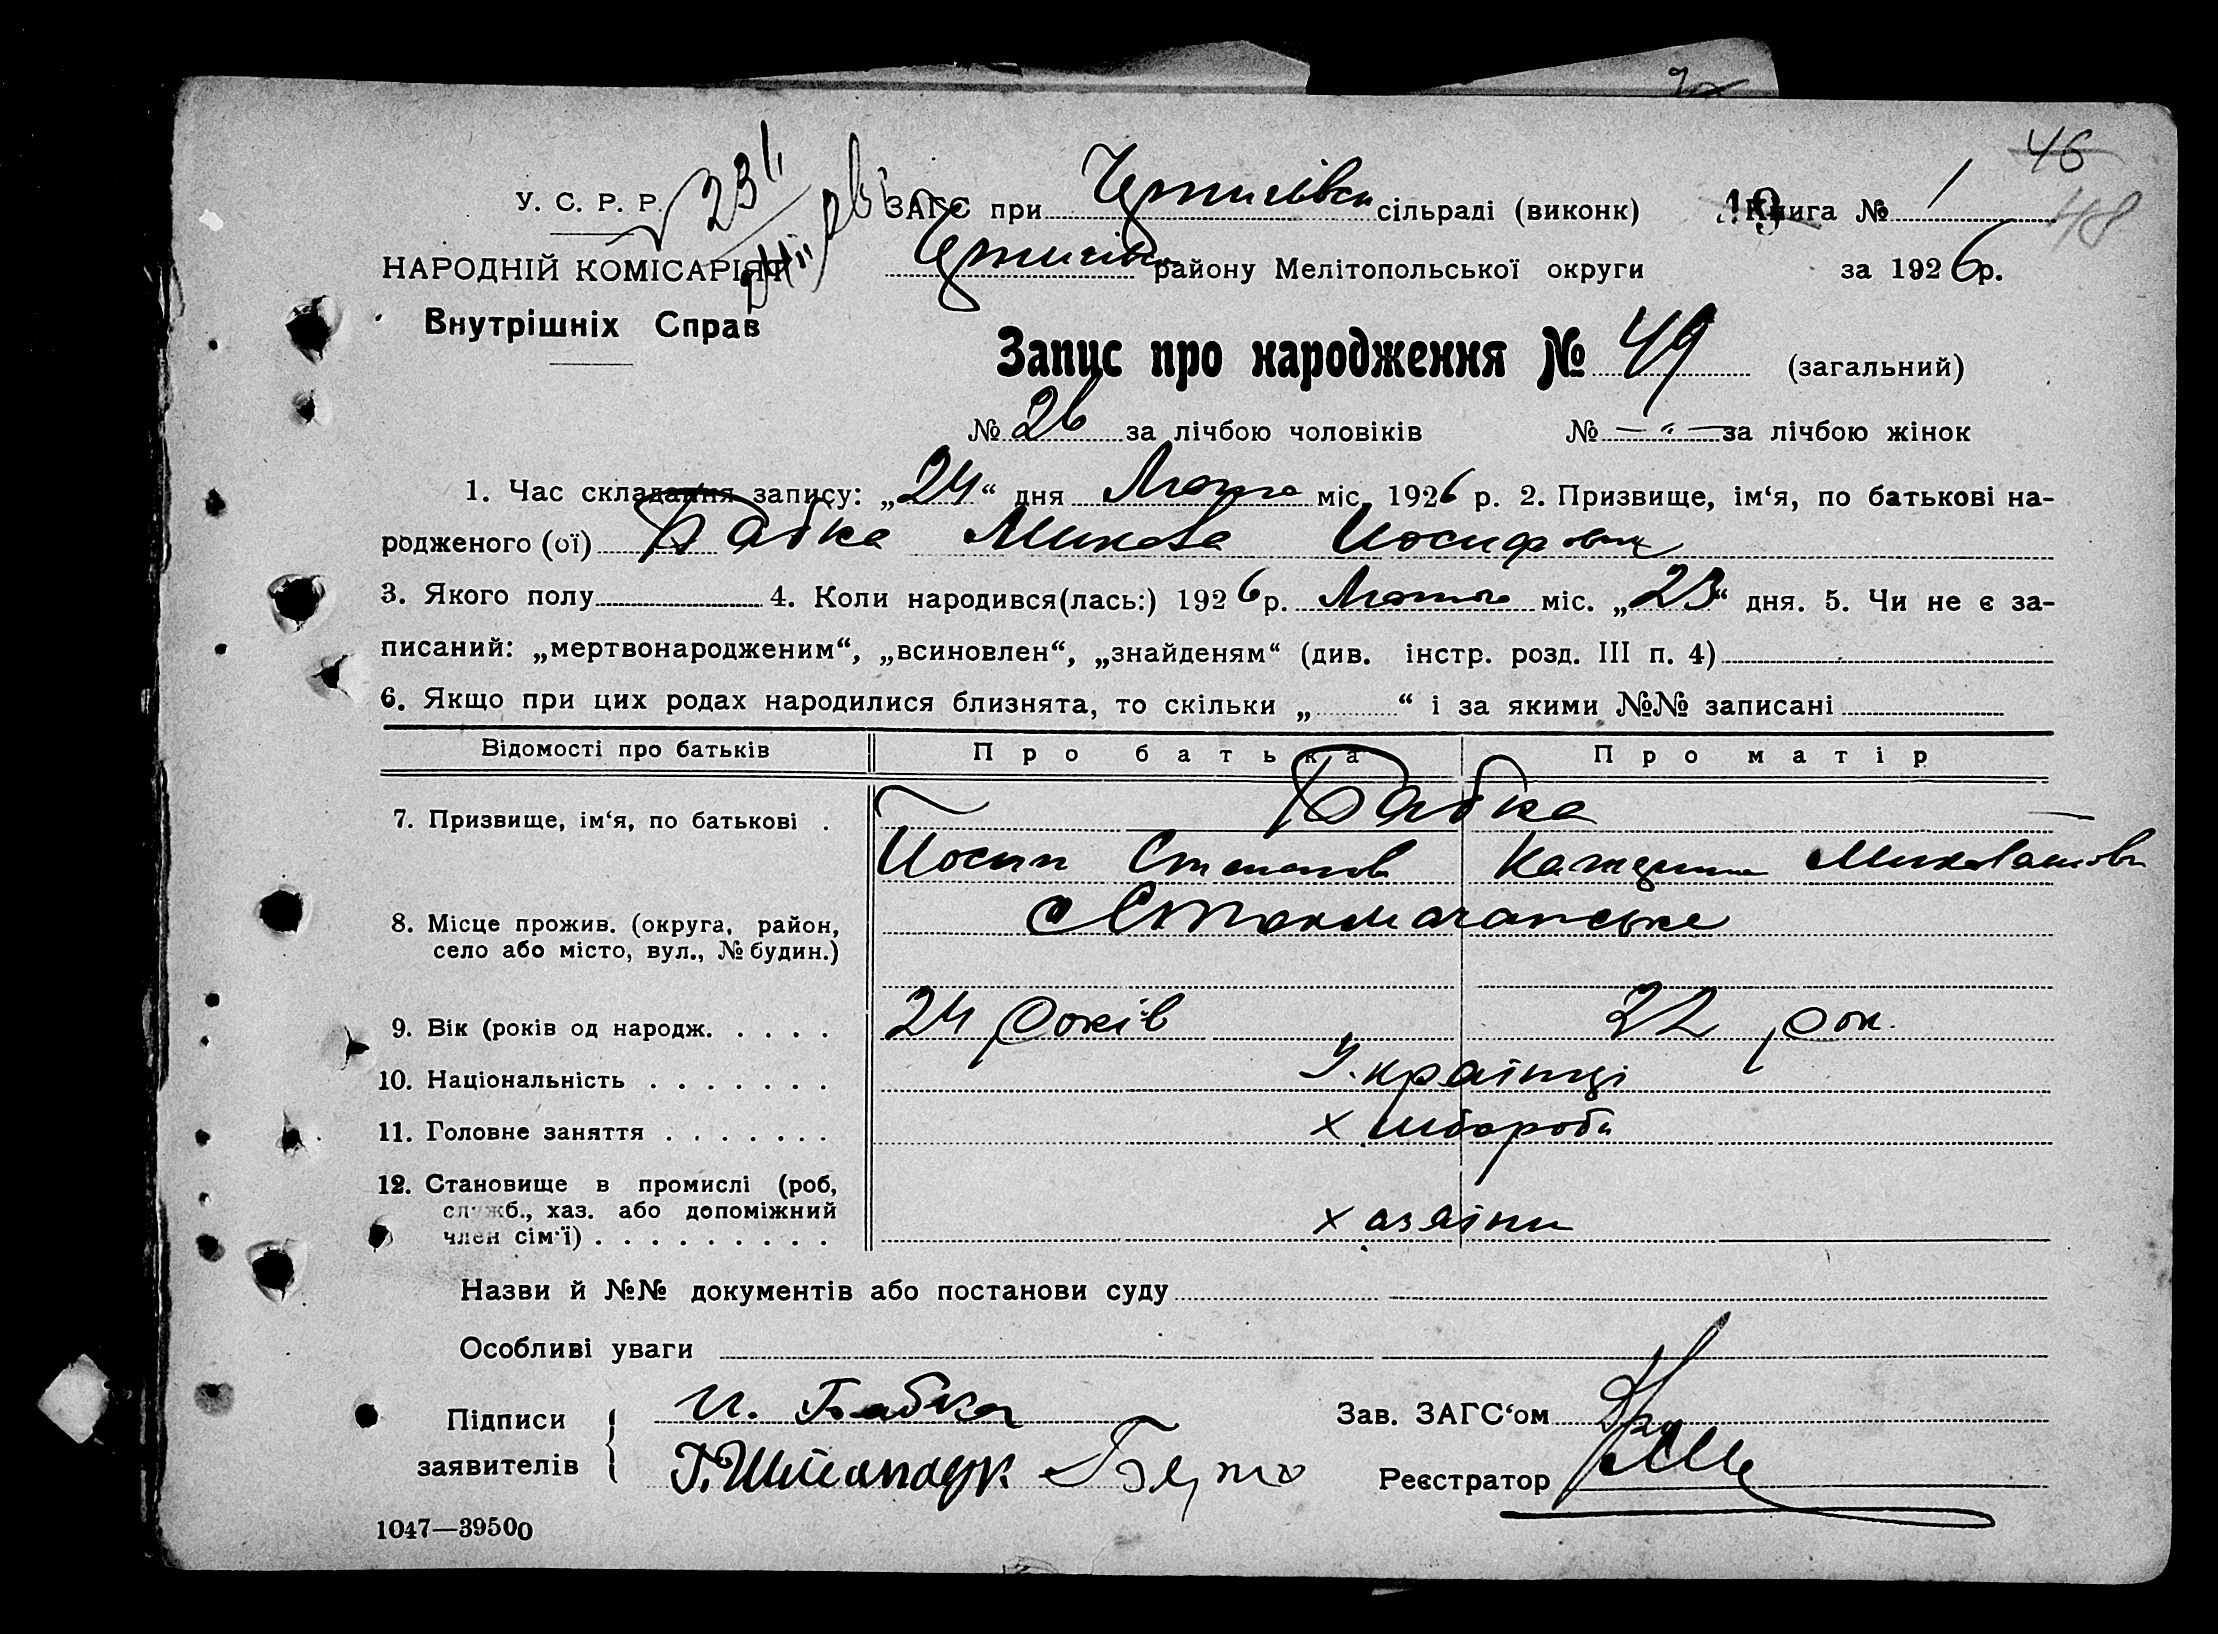 46
48
У. С. Р. Р.
23/II
ЗАГС при Чернигівск сільраді (виконк) Книга № 1
НАРОДНІЙ КОМІСАРІЯТ
Чернигівск району Мелітопольської округи за 1926 р.
Внутрішніх Справ
Запис про народження № 49 (загальний)
№ 26 за лічбою чоловіків № — " — за лічбою жінок
1. Час складання запису: „24“ дня Лютого міс. 1926 р. 2. Призвище, ім‘я, по батькові на-
родженого (ої) Бабка Микола Иосифович
3. Якого полу 4. Коли народився(лась:) 1926 р. Лютого міс. „23“ дня. 5. Чи не є за-
писаний: „мертвонародженим“, „всиновлен“, „знайденям“ (див. інстр. розд. III п. 4)
6. Якщо при цих родах народилися близнята, то скільки „ “ і за якими №№ записані
Відомості про батьків Про батька Про матір
7. Призвище, ім‘я, по батькові . Бабка
Иосип Степанов Катерина Миколаевна
8. Місце прожив. (округа, район,
село або місто, вул., № будин.)
9. Вік (років од народж. . . . . 24 років 22 рок.
10. Національність . . . . . . . Українці
11. Головне заняття . . . . . . . хлібороби
12. Становище в промислі (роб,
служб., хаз. або допоміжний
член сім‘ї) . . . . . . . . . хазяіни
Назви й №№ документів або постанови суду
Особливі уваги
Підписи
заявителів
И. Бабка
Зав. ЗАГС‘ом
Реєстратор
1047—39500